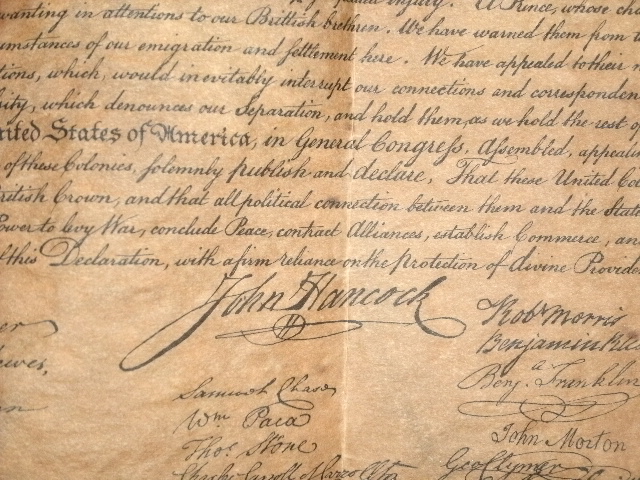 injury. A Prince, whose
wanting in attentions to our Brittish brethren. We have warned them from
umstances of our emigration and settlement here. We have appealed to their
tions, which, would inevitably interrupt our connections and corresponden
ity, which denounces our Separation, and hold them, as we hold the rest of
nited States of America, in General Congress, Assembled, appealin
of these Colonies, solemnly publish and declare, That these United Co
ritish Crown, and that all political connection between them and the State
Power to levy War, conclude Peace, contract Alliances, establish Commerce, an
this Declaration, with a firm reliance on the Protection of divine Provide
John Hancock
Robt Morris
Benjamin
Benj. Franklin
Samuel Chase
Wm Paca
Thos Stone
Charles Carroll of Carrollton
John Morton
Geo Clymer